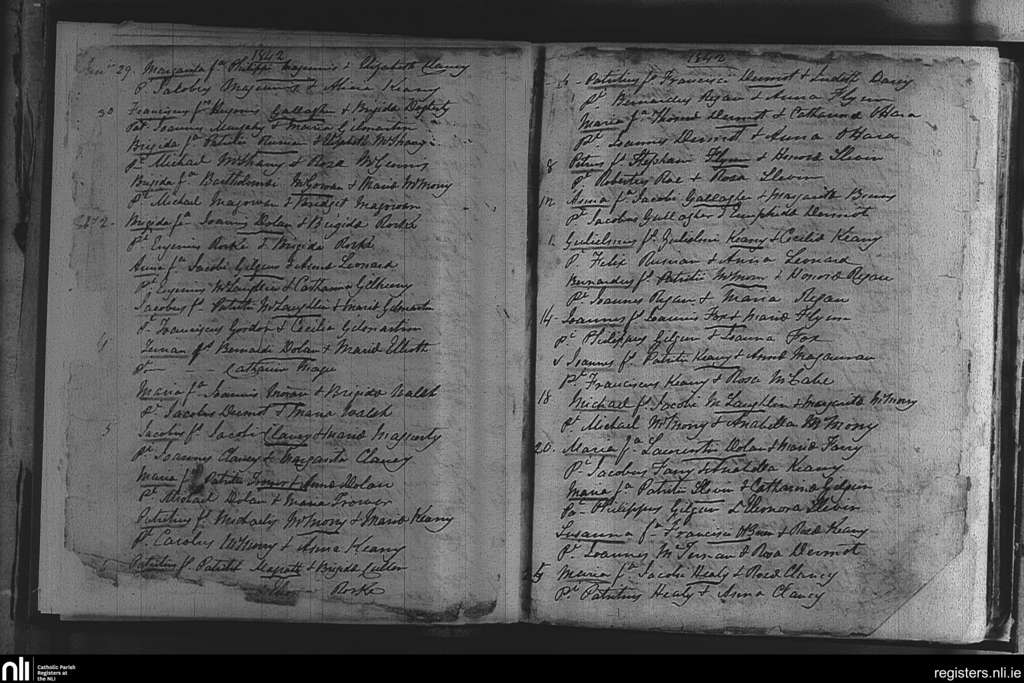 1842
29. Margarita fa Philippi Magennis & Elizabeth Clancy
Pt Jacobus Magennis & Anna Keany
30 Franciscus fs Eugenii Gallagher & Brigida Dogherty
Pat Joannes Murphy & Maria Gilmartin
Brigida fa Patritii Rusian & Elizabeth McShany
Pt Michael McShany & Rosa McGenns
Brigida fa Bartholomei McGowan & Maria McMorry
Pt Michael Magowan & Bridget Magowan
2 - Brigida fa Joannis Dolan & Brigida Rorke
Pt Eugenius Rorke & Brigida Rorke
Anna fa Jacobi Gilgun & Anna Leonard
Pt Eugenius McLaughlin & Catharina Gilheany
Jacobus fs Patritii McLaughlin & Maria Gilmartin
Pt Franciscus Gordon & Cecilia Gilmartin
Ternan fs Bernardi Dolan & Maria Elliott
Pt — — Catharin Magee
Maria fa Joannis Moran & Brigida Walsh
Pt Jacobus Dermot & Maria Walsh
5 Jacobus fs Jacobi Clancy & Maria Magverty
Pt Joannes Clancy & Margarita Clancy
Maria fa Patritii Trower & Anna Dolan
Pt Michael Dolan & Maria Trower
Patritius fs Michaelis McMorry & Maria Keany
Pt Jacobus McMorry & Anna Keany
Patritius fs Patritii Magrath & Brigida Cullen
Rorke
1842
Patritius fs Francisci Dermot & Davey
Pt Bernardus Regan & Anna Flynn
Maria fa Thomae Dermot & Catharina OHara
Pt Joannes Dermot & Anna OHara
8 Petrus fs Stephani Flynn & Honora Slevin
Pt Robertus Rae & Rosa Slevin
12 Anna fa Jacobi Gallagher & Margarita Burns
Pt Jacobus Gallagher & Dermot
Gulielmus fs Gulielmi Keany & Cecilia Keany
Pt Felix Rusian & Anna Leonard
Bernardus fs Patritii McMorr & Honora Regan
Pt Joannes Regan & Maria Regan
14 - Joannes fs Joannis Fox & Maria Flynn
Pt Philippus Gilgun & Joanna Fox
Joannes fs Patritii Keany & Anna Magauran
Pt Franciscus Keany & Rosa McCabe
18 Michael fs Jacobi McLaughlin & Margarita McMorry
Pt Michael McMorry & Anabella McMorry
20. Maria fa Laurentii Dolan & Maria Farry
Pt Jacobus Farry & Anabella Keany
Maria fa Patritii Slevin & Catharina Gilgun
Pa - Philippus Gilgun & Eleonora Slevin
Susanna fa Francisci & Rosa Keany
Pt Joannes McTernan & Rosa Dermot
Maria fa Jacobi Healy & Rosa Clancy
Pt Patritius Healy & Anna Clancy
nli
Catholic Parish
Registers at
the NLI
registers.nli.ie